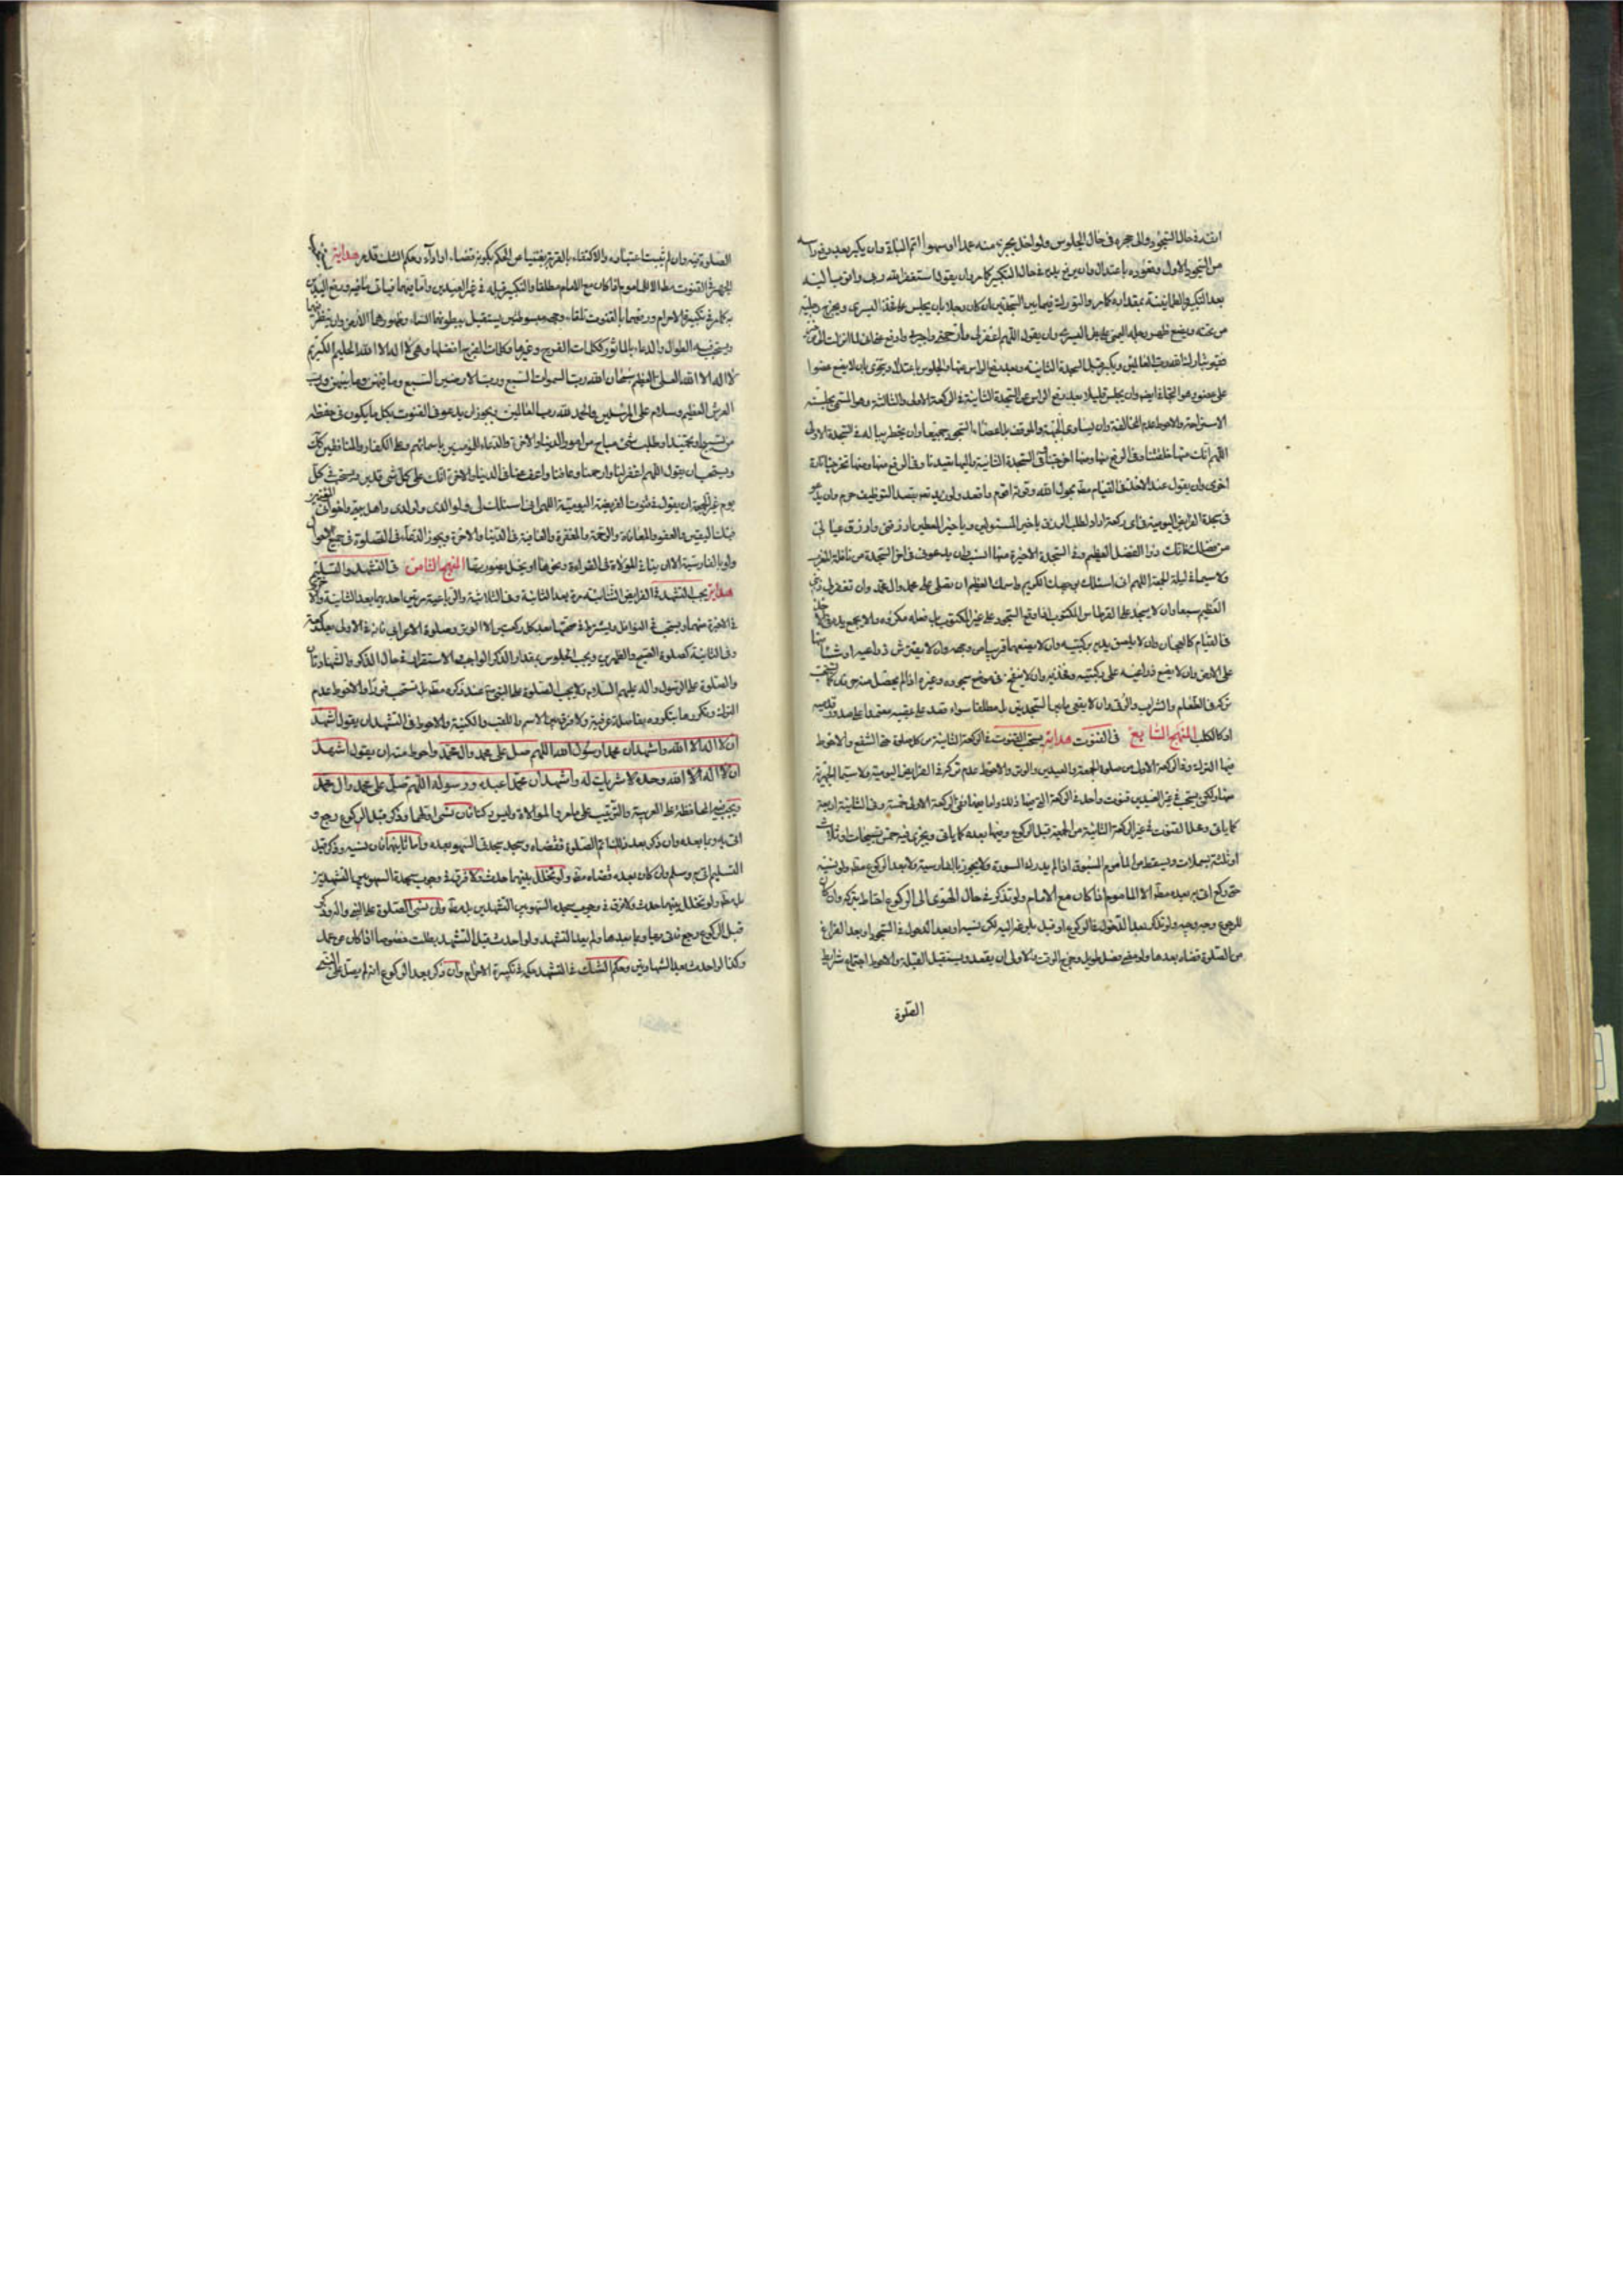 انفه في حال السجود والى حجره في حال الجلوس ولو اخل بجزء منه عمدا او سهوا اتم الباقي وان يكبر بعد رفع راسه
من السجود الاول وقعوده باعتدال وان يرفع يديه في حال التكبير كما مر وان يقول استغفر الله ربي واتوب اليه
بعد التكبير والطمانينة بمقداره كما مر والتورك فيما بين السجدتين ان كان رجلا بان يجلس على فخذ اليسرى ويخرج رجليه
من تحته ويضع ظهر رجله اليمنى على بطن اليسرى وان يقول اللهم اغفر لي وارحمني واجرني وادفع عني اني لما انزلت الي من خير
فقير تبارك الله رب العالمين ويكبر قبل السجدة الثانية وبعد رفع الراس منها والجلوس باعتدال و بان لا يضع عضوا
على عضو وهو التجافي ايضا وان يجلس قليلا بعد رفع الراس من السجدة الثانية في الركعة الاولى والثالثة وهو المسمى بجلسة
الاستراحة والاحوط عدم المخالفة وان يساوي الجبهة والموقف بل اعضاء السجود جميعا وان يخطر بباله في السجدة الاولى
اللهم انك منها خلقتنا وفي الرفع منها ومنها اخرجتنا وفي السجدة الثانية واليها تعيدنا وفي الرفع منها ومنها تخرجنا تارة
اخرى وان يقول عند الاخذ في القيام مطلقا بحول الله وقوته اقوم واقعد وان يدعو
في سجدة الفرايض اليومية في اي ركعة اراد لطلب الرزق يا خير المسئولين ويا خير المعطين ارزقني وارزق عيالي
من فضلك فانك ذو الفضل العظيم وفي السجدة الاخيرة منها وان يدعو في اخر السجدة من نافلة المغرب
ولا سيما في ليلة الجمعة اللهم اني اسئلك بوجهك الكريم واسمك العظيم ان تصلي على محمد وال محمد وان تغفر لي ذنبي
العظيم سبعا وان لا يسجد على القرطاس المكتوب وان لا يجمع يديه
في القيام كالعجان وان لا يلصق يديه بركبتيه وان لا يضعهما قريبا من وجهه وان لا يفترش ذراعيه
على الارض وان لا يضع ذراعيه على ركبتيه وفخذيه وان لا ينفخ في موضع سجوده وغيره اذا لم يحصل منه حرفان كما يستحب
تركه في الطعام والشراب والرقى وان لا يقعي بين السجدتين بل مطلقا سواء قعد على عقبيه معتمدا على صدور قدميه
او كالكلب المنهج السابع في القنوت هداية يستحب القنوت في الركعة الثانية من كل صلوة حتى الشفع والاحوط
فيها الترك وفي الركعة الاولى من صلوة الجمعة والعيدين والوتر والاحوط عدم تركه في الفرايض اليومية ولا سيما الجهرية
منها ولكن يستحب في غير العيدين قنوت واحد في الركعة واما فيهما ففي الركعة الاولى خمسة وفي الثانية اربعة
كما ياتي ومحل القنوت في غير الركعة الثانية من الجمعة قبل الركوع وفيها بعده كما ياتي ويجزي فيه خمس تسبيحات او ثلاث
او ثلثة بسملات ويسقط عن الماموم المسبوق اذا لم يدرك السورة ولا يجوز بالفارسية ولا بعد الركوع مطلقا ولو نسيه
حتى ركع اتى به بعده مطلقا الا الماموم اذا كان مع الامام ولو تذكر في حال الهوي الى الركوع احتاط بتركه وان كان
للرجوع وجه وجيه ولو تذكر بعد الدخول في الركوع او قبل بلوغه اليه لكن نسيه او بعد الدخول في السجود او بعد الفراغ
من الصلوة قضاه بعدها ولو مضى فصل طويل وخرج الوقت والاولى ان يقعد ويستقبل القبلة والاحوط اجتماع شرايط
الصلوة
الصلوة فيه وان لم يثبت اعتباره والاكتفاء بالقربة يغنينا عن الحكم بكونه قضاء او اداء وحكم الشك قد مر هداية
الجهر في القنوت مطلقا الا للماموم اذا كان مع الامام مطلقا والتكبير قبله في غير العيدين واما فيهما فياتي ما فيه ورفع اليدين
به كما مر في تكبيرة الاحرام ورفعهما بالقنوت تلقاء وجهه مبسوطتين يستقبل ببطونهما السماء وظهورهما الارض وان ينظر اليهما
ويستحب فيه الطول والدعاء بالماثور ككلمات الفرج وغيرها وكلمات الفرج افضلها وهي لا اله الا الله الحليم الكريم
لا اله الا الله العلي العظيم سبحان الله رب السموات السبع ورب الارضين السبع وما فيهن وما بينهن ورب
العرش العظيم وسلام على المرسلين والحمد لله رب العالمين ويجوز ان يدعو في القنوت بكل ما يكون في حفظه
من تسبيح او تحميد او طلب شيء مباح من امور الدنيا والاخرة والدعاء للمؤمنين باسمائهم وعلى الكفار والمنافقين كذلك
ويستحب ان يقول اللهم اغفر لنا وارحمنا وعافنا واعف عنا في الدنيا والاخرة انك على كل شيء قدير ويستحب في كل
يوم غير الجمعة ان يقول في قنوت الفريضة اليومية اللهم اني اسئلك لي ولوالدي وولدي واهل بيتي واخواني
فيك اليقين والعفو والمعافاة والرحمة والمغفرة والعافية في الدنيا والاخرة ويجوز الدعاء في الصلوة في جميع الاحوال
ولو بالفارسية الا ان ينافي الموالاة في القراءة ونحوها او يخل بصورتها المنهج الثامن في التشهد والتسليم
هداية يجب التشهد في الفرايض الثنائية مرة بعد الثانية وفي الثلاثية والرباعية مرتين احديهما بعد الثانية والاخرى
في الاخيرة منهما ويستحب في النوافل ويشترط في صحتها بعد كل ركعتين الا الوتر وصلوة الاعرابي فانه في الاولى بعد ركعة
وفي الثانية كصلوة الصبح والظهرين ويجب الجلوس بمقدار الذكر الواجب والاستقرار في حال الذكر والشهادتان
والصلوة على الرسول واله عليهم السلام ولا يجب الصلوة على النبي ص عند ذكره مطلقا بل تستحب فورا والاحوط عدم
الترك ويتكرر ما يتكرر بفاصلة عرفية ولا فرق بين الاسم واللقب والكنية والاحوط في التشهد ان يقول اشهد
ان لا اله الا الله واشهد ان محمدا رسول الله اللهم صل على محمد وال محمد واحوط منه ان يقول اشهد
ان لا اله الا الله وحده لا شريك له واشهد ان محمدا عبده ورسوله اللهم صل على محمد وال محمد
ويجب فيه المحافظة على العربية والترتيب على ما مر والموالاة وليس ركنا فان نسي اولهما وذكر قبل الركوع رجع و
اتى به وبما بعده وان ذكر بعد ذلك اتم الصلوة فقضاه وسجد سجدتي السهو بعده واما ثانيهما فان نسيه وذكر قبل
التسليم اتى به وسلم وان كان بعده قضاه مطلقا ولو تخلل بينهما حدث ولا فرق في وجوب سجدة السهو بين التشهدين
بل مطلقا ولو تخلل بينهما حدث ولا فرق في وجوب سجدة السهو بين التشهدين بل مطلقا وان نسي الصلوة على النبي واله وذكر
قبل الركوع رجع فاتى بها وبما بعدها ولم يعد التشهد ولو احدث قبل التشهد بطلت خصوصا اذا كان عن عمد
وكذا لو احدث بعد الشهادتين وحكم الشك في التشهد حكمه في تكبيرة الاحرام وان ذكر بعد الركوع انه لم يصل على النبي